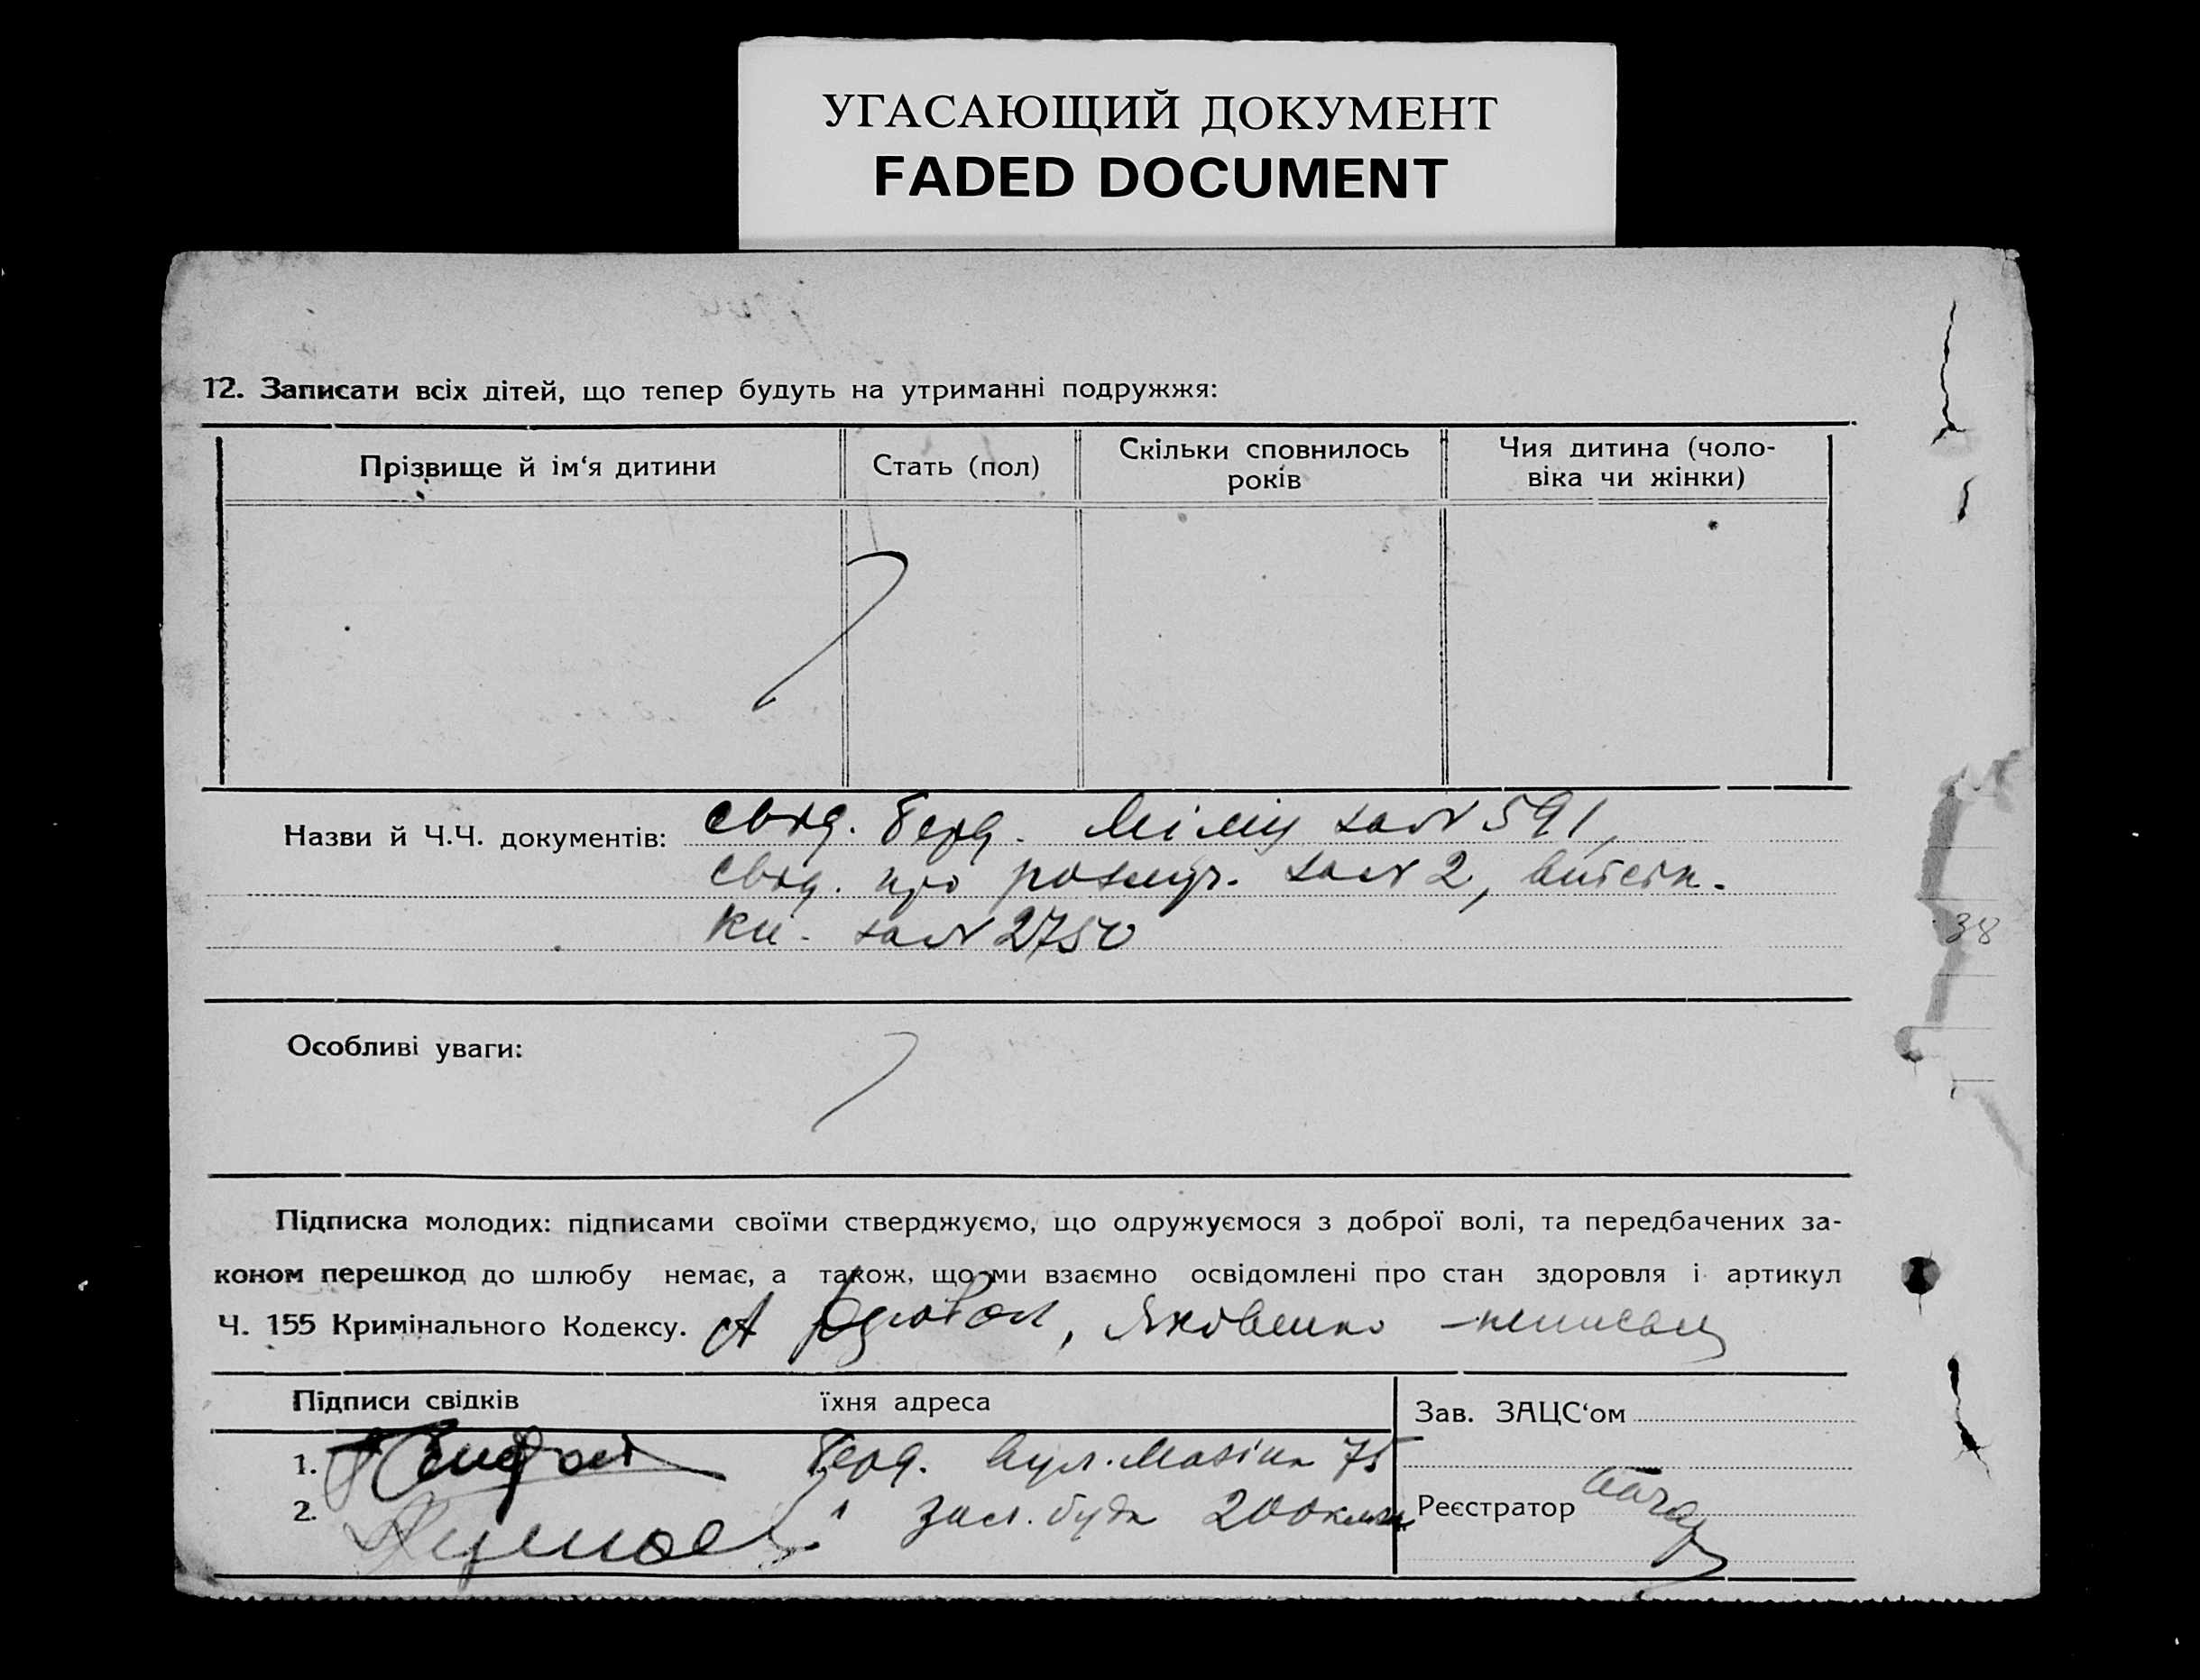 УГАСАЮЩИЙ ДОКУМЕНТ
FADED DOCUMENT
12. Записати всіх дітей, що тепер будуть на утриманні подружжя:
Прізвище й ім‘я дитини
Стать (пол)
Скільки сповнилось
років
Чия дитина (чоло-
віка чи жінки)
Назви й Ч.Ч. документів: свід. Берд. Міліц за № 591,
свід. про розлуч. за № 2,
кн. за № 2750
38
Особливі уваги:
Підписка молодих: підписами своїми стверджуємо, що одружуємося з доброї волі, та передбачених за-
коном перешкод до шлюбу немає, а також, що ми взаємно освідомлені про стан здоровля і артикул
Ч. 155 Кримінального Кодексу. Яковенко
Підписи свідків
їхня адреса
Зав. ЗАЦС‘ом
1. Берд. вул. Мазіна 75
2. 200
Реєстратор